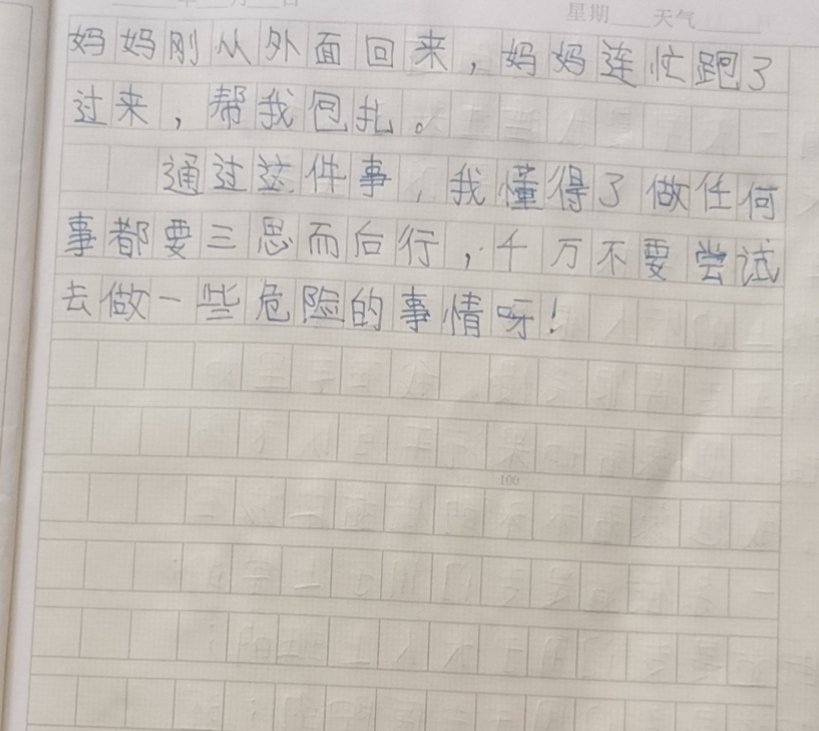 年 月 日
星期 天气
妈妈刚从外面回来，妈妈连忙跑了
过来，帮我包扎。
通过这件事，我懂得了做任何
事都要三思而后行，千万不要尝试
去做一些危险的事情呀！
100